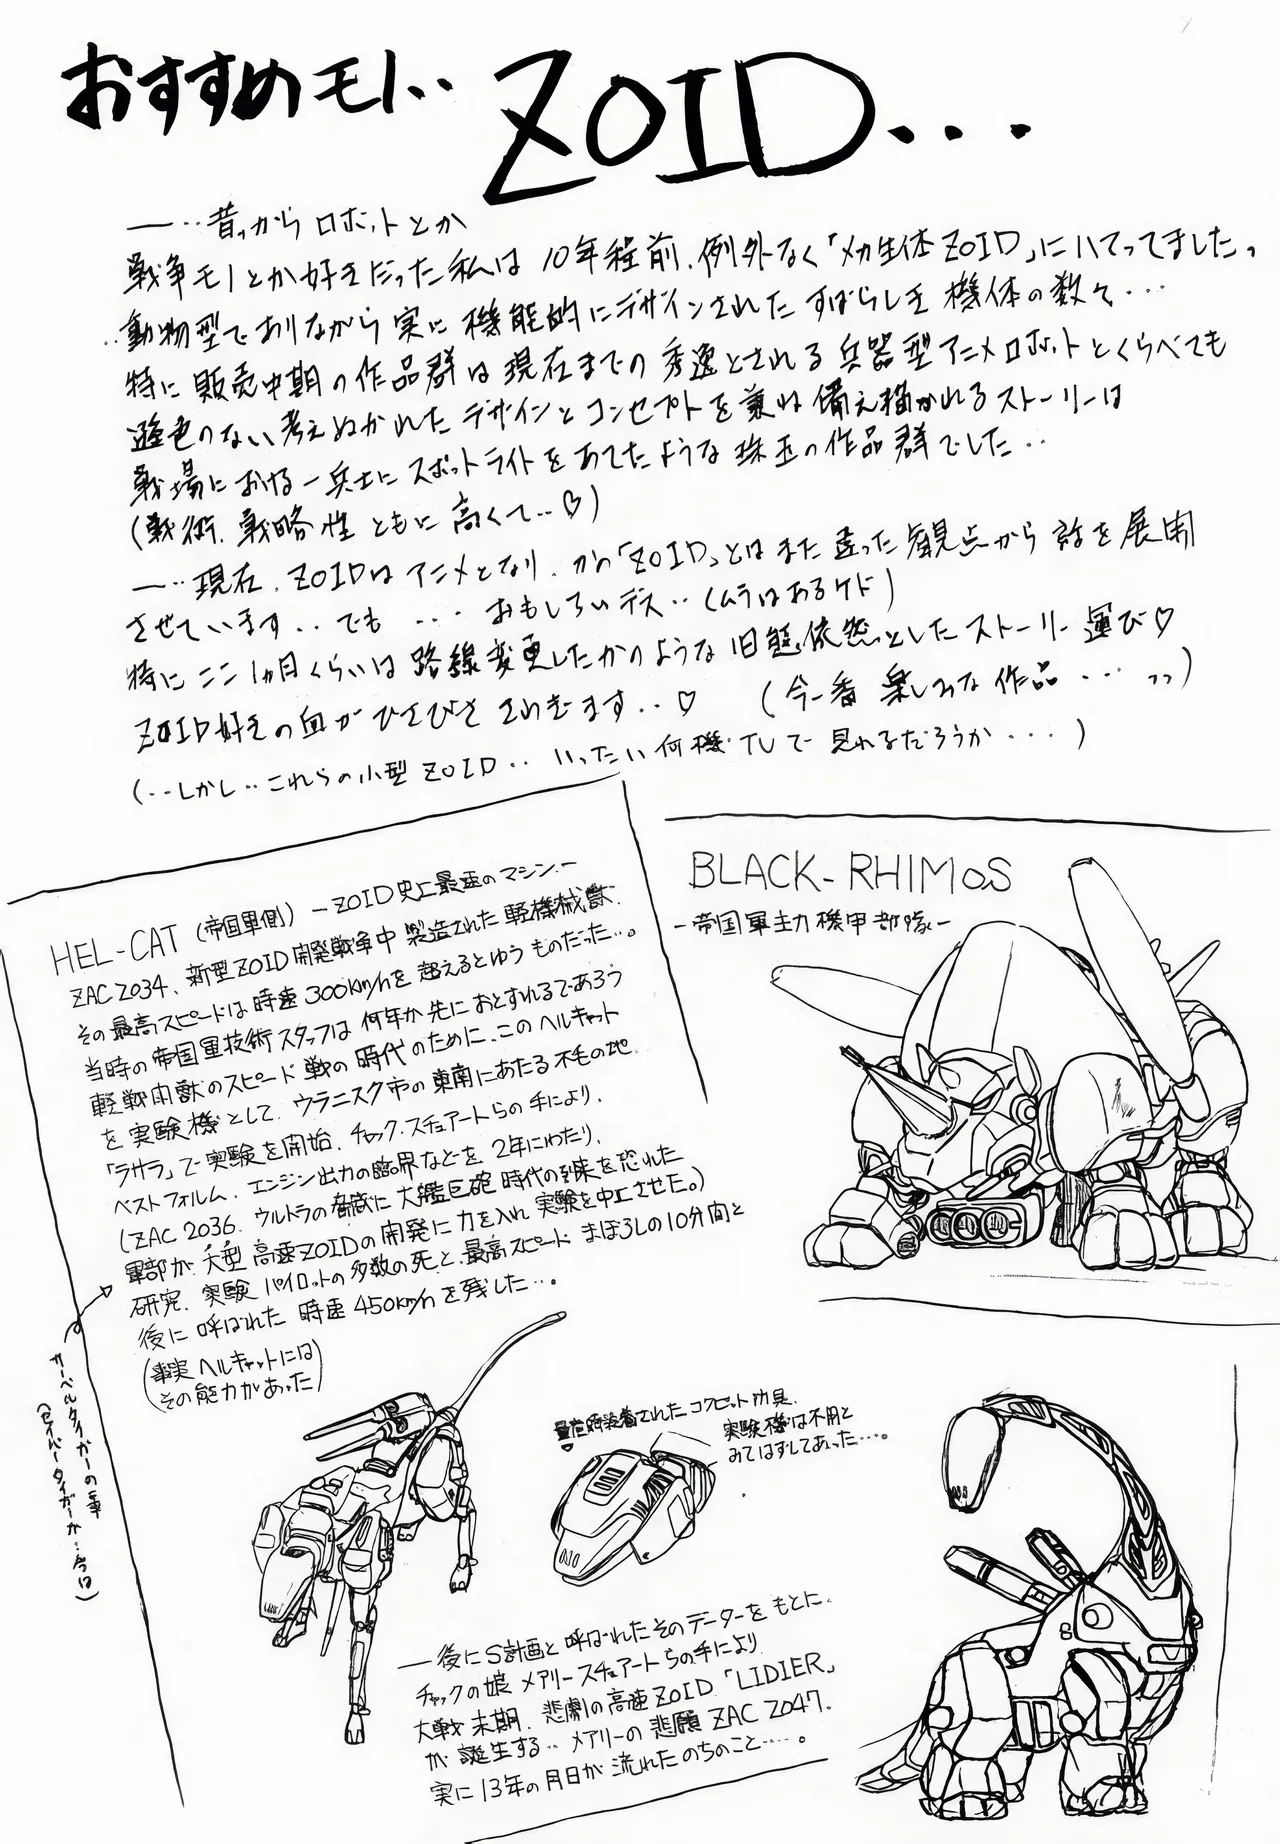 おすすめモノ‥
ZOID・・・
―‥昔っからロボットとか
戦争モノとか好きだった私は10年程前、例外なく「メカ生体ZOID」にハマってましたっ
‥動物型でありながら実に機能的にデザインされたすばらしき機体の数々・・・
特に販売中期の作品群は現在までの秀逸とされる兵器型アニメロボットとくらべても
遜色のない考えぬかれたデザインとコンセプトを兼ね備え描かれるストーリーは
戦場における一兵士にスポットライトをあてたような珠玉の作品群でした‥
(戦術、戦略性ともに高くて‥♡)
―‥現在、ZOIDはアニメとなり、かの「ZOID」とはまた違った観点から話を展開
させています‥でも・・・おもしろいデス‥(ムラはあるケド)
特にここ1ヵ月くらいは路線変更したかのような旧態依然っとしたストーリー運び♡
ZOID好きの血がひさびささわぎます‥♡ (今一番楽しみな作品・・・っっ)
(‥しかし‥これらの小型ZOID‥いったい何機TVで見れるだろうか・・・)
HEL-CAT (帝国軍側) ーZOID史上最速のマシンー
ZAC2034、新型ZOID開発戦争中製造された軽機械獣、
その最高スピードは時速300km/hを超えるとゆうものだった…。
当時の帝国軍技術スタッフは何年か先におとずれるであろう
軽戦闘獣のスピード戦の時代のために、このヘルキャット
を実験機として、ウラニスク市の東南にあたる不毛の地
「ラサラ」で実験を開始、チャック.スチュアートらの手により、
ベストフォルム、エンジン出力の臨界などを、2年にわたり、
(ZAC2036、ウルトラの脅威に大艦巨砲時代の到来を恐れた
軍部が、大型高速ZOIDの開発に力を入れ実験を中止させた。)
研究、実験パイロットの多数の死と、最高スピードまぼろしの10分間と
後に呼ばれた時速450km/hを残した…。
(事実ヘルキャットには
その能力があった)
サーベルタイガーの事
(セイバータイガーか…今は)
量産時装着されたコクピット防具、
実験機は不用と
みてはずしてあった…。
―後にS計画と呼ばれたそのデーターをもとに、
チャックの娘メアリースチュアートらの手により
大戦末期、悲劇の高速ZOID「LIDIER」
が誕生する‥メアリーの悲願ZAC2047、
実に13年の月日が流れたのちのこと……。
BLACK-RHIMOS
ー帝国軍主力機甲部隊ー
8